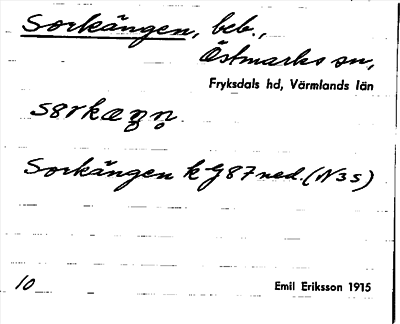 Sorkängen, beb.,
Östmarks sn,
Fryksdals hd, Värmlands län
Sorkängen k G87 ned. (N35)
10
Emil Eriksson 1915